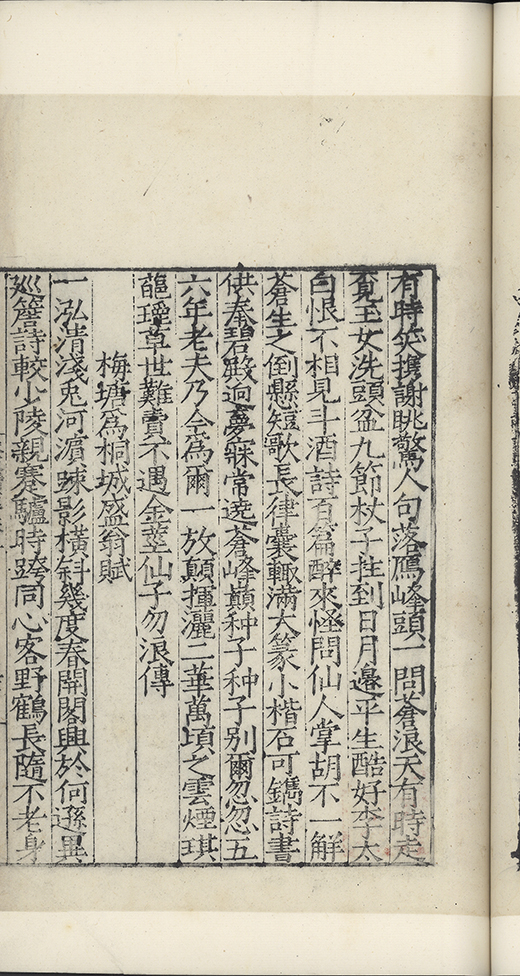 有時笑攜謝眺驚人句落鴈峰頭一問蒼浪天有時走
覔玉女洗頭盆九節杖子拄到日月邊平生酷好李太
白恨不相見斗酒詩百篇醉來怪問仙人掌胡不一解
蒼生之倒懸短歌長律囊輙滿大篆小楷石可鐫詩書
供奉碧殿逈夢寐常遶蒼峰巔种子种子別爾忽忽五
六年老夫乃今爲爾一放顛揮灑二華萬頃之雲煙琪
葩瑤草世難賣不遇金莖仙子勿浪傳
梅塘爲桐城盛翁賦
一泓清淺兎河濵踈影橫斜幾度春開閣興於何遜異
廵簷詩較少陵親蹇驢時跨同心客野鶴長隨不老身